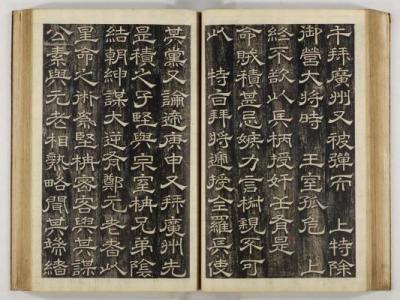 午拜廣州又被彈而 上特除
御營大將時 王室孤危 上
終不欲以兵柄授奸壬有是
命賊積甚忌嫉力言樹親不可
以 特旨拜將遞授全羅兵使
其黨又論遞庚申又拜廣州先
是積之子堅與宗室柟兄弟陰
結朝紳謀大逆有鄭元老者以
星命之術爲堅柟密客與其謀
公素與元老相熟略聞其端緒